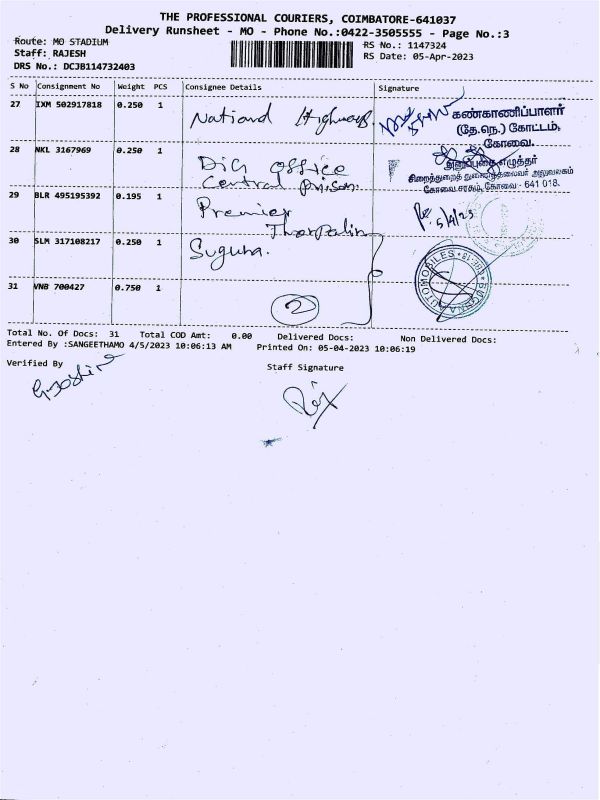 THE PROFESSIONAL COURIERS, COIMBATORE-641037
Delivery Runsheet - MO - Phone No.:0422-3505555 - Page No.:3
Route: MO STADIUM
RS No.: 1147324
Staff: RAJESH
RS Date: 05-Apr-2023
DRS No.: DCJB114732403
S No Consignment No Weight PCS Consignee Details Signature
27 IXM 502917818 0.250 1 National Highways கண்காணிப்பாளர்
(தே.நெ.) கோட்டம்,
கோவை.
28 NKL 3167969 0.250 1 DIG office
Central Prison.
சிறைத்துறைத் துணைத்தலைவர் அலுவலகம்
கோவை சரகம், கோவை - 641 018.
29 BLR 495195392 0.195 1 Premier
Tharpalin
5/4/23
30 SLM 317108217 0.250 1 Suguna.
SUGUNA AUTOMOBILES
31 VNB 700427 0.750 1
2
Total No. Of Docs: 31 Total COD Amt: 0.00 Delivered Docs: Non Delivered Docs:
Entered By :SANGEETHAMO 4/5/2023 10:06:13 AM Printed On: 05-04-2023 10:06:19
Verified By Staff Signature